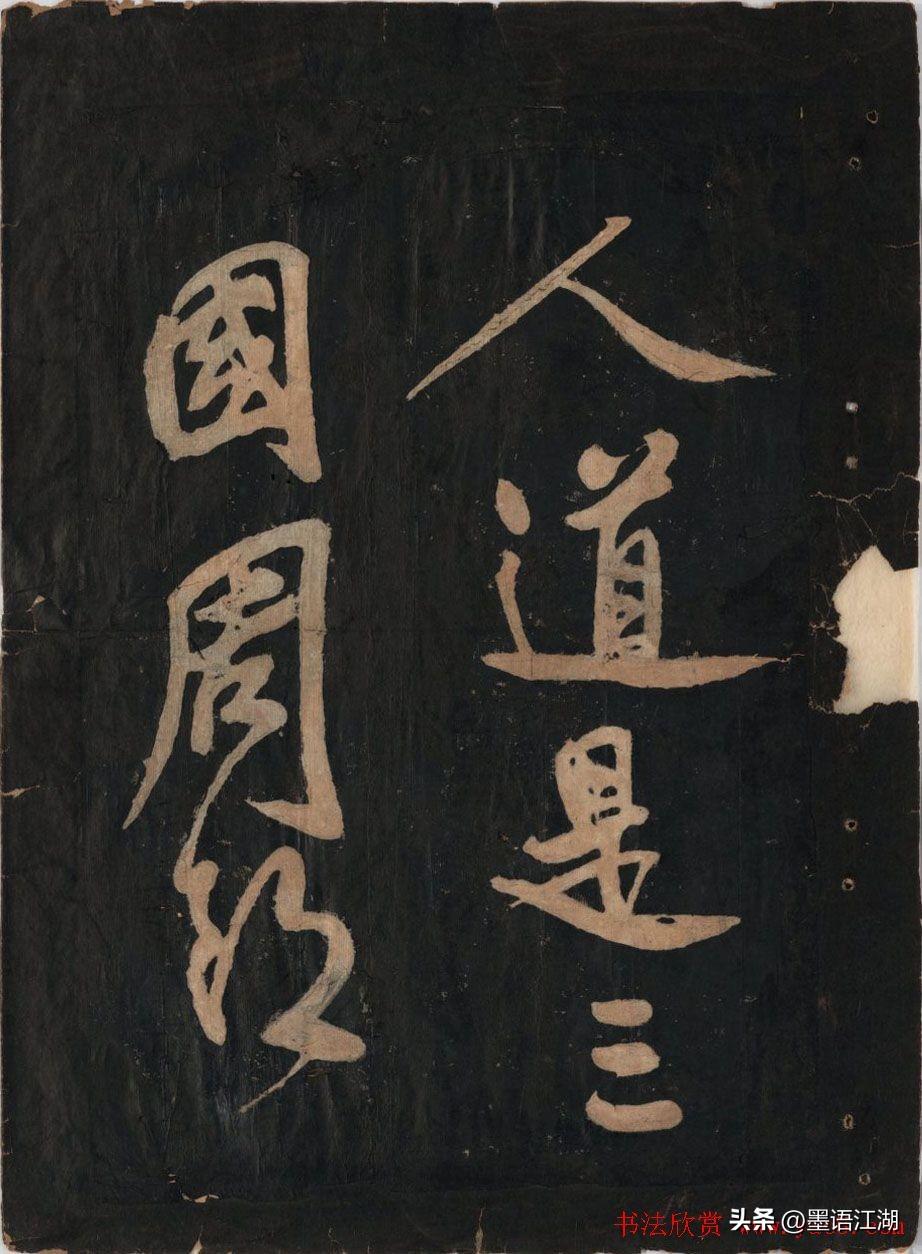 人道是三
國周郎
书法欣赏
头条 @墨语江湖